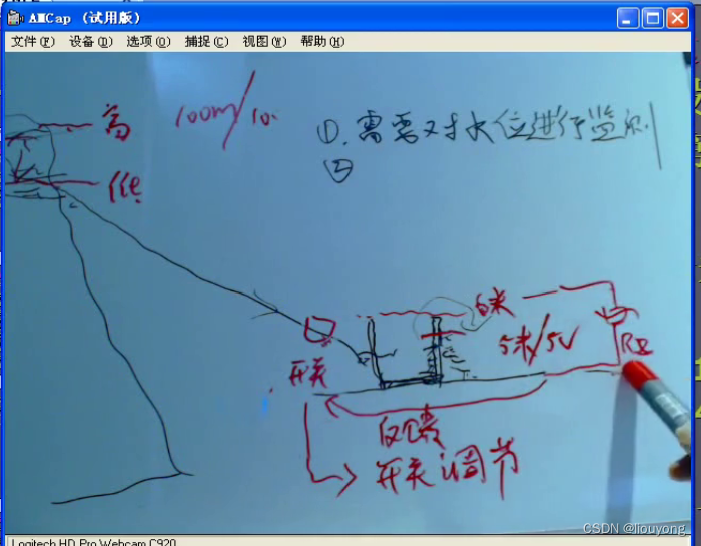 AMCap (试用版)
文件(F) 设备(D) 选项(O) 捕捉(C) 视图(V) 帮助(H)
高
100m/10.
①. 需要对水位进行监测
②
低
6米
5米/5V
开关
反馈
开关调节
CSDN @liouyong
Logitech HD Pro Webcam C920